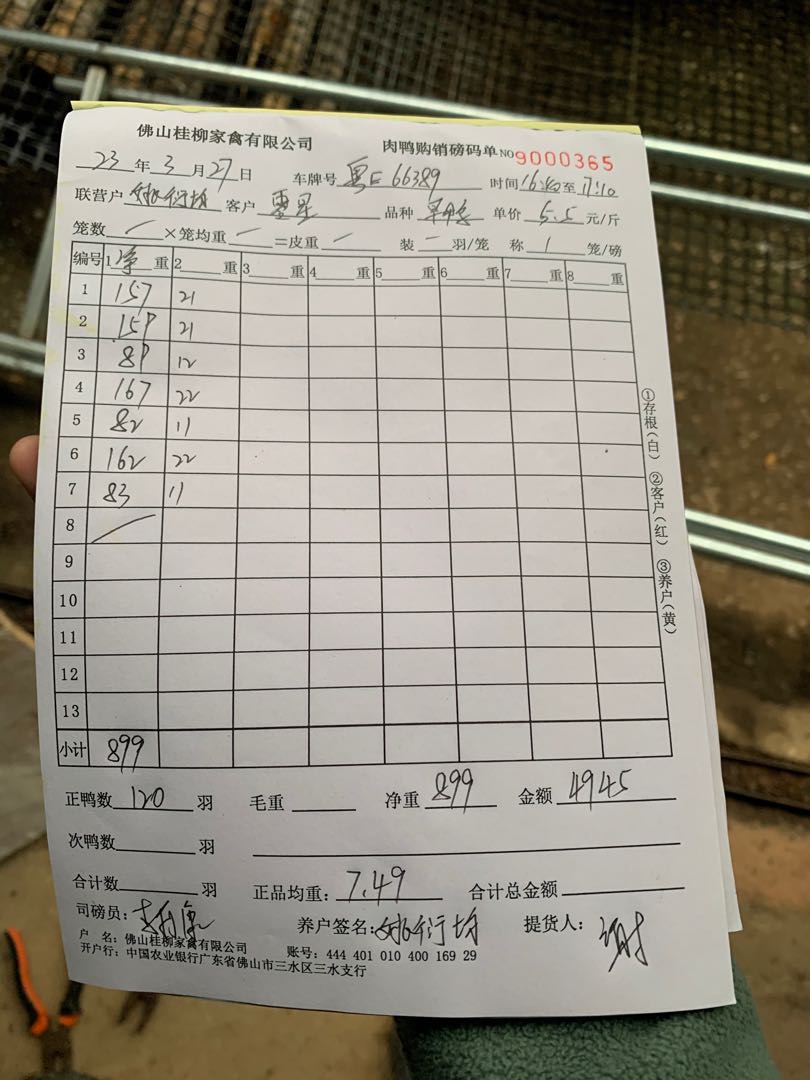 佛山桂柳家禽有限公司 肉鸭购销磅码单 NO 9000365
23 年 3 月 27 日 车牌号 粤E 66389 时间 16:40 至 17:10
联营户 姚衍均 客户 零星 品种 单价 5.5 元/斤
笼数 / ×笼均重 — =皮重 — 装 — 羽/笼 称 1 笼/磅
编号 1 净 重 2 重 3 重 4 重 5 重 6 重 7 重 8 重
1 157 21
2 159 21
3 89 12
4 167 22
5 82 11
6 162 22
7 83 11
8 /
9
10
11
12
13
小计 899
正鸭数 120 羽 毛重 净重 899 金额 4945
次鸭数 羽
合计数 羽 正品均重: 7.49 合计总金额
司磅员: 养户签名: 姚衍均 提货人: 谢
户 名: 佛山桂柳家禽有限公司 账号: 444 401 010 400 169 29
开户行: 中国农业银行广东省佛山市三水区三水支行
①存根(白) ②客户(红) ③养户(黄)